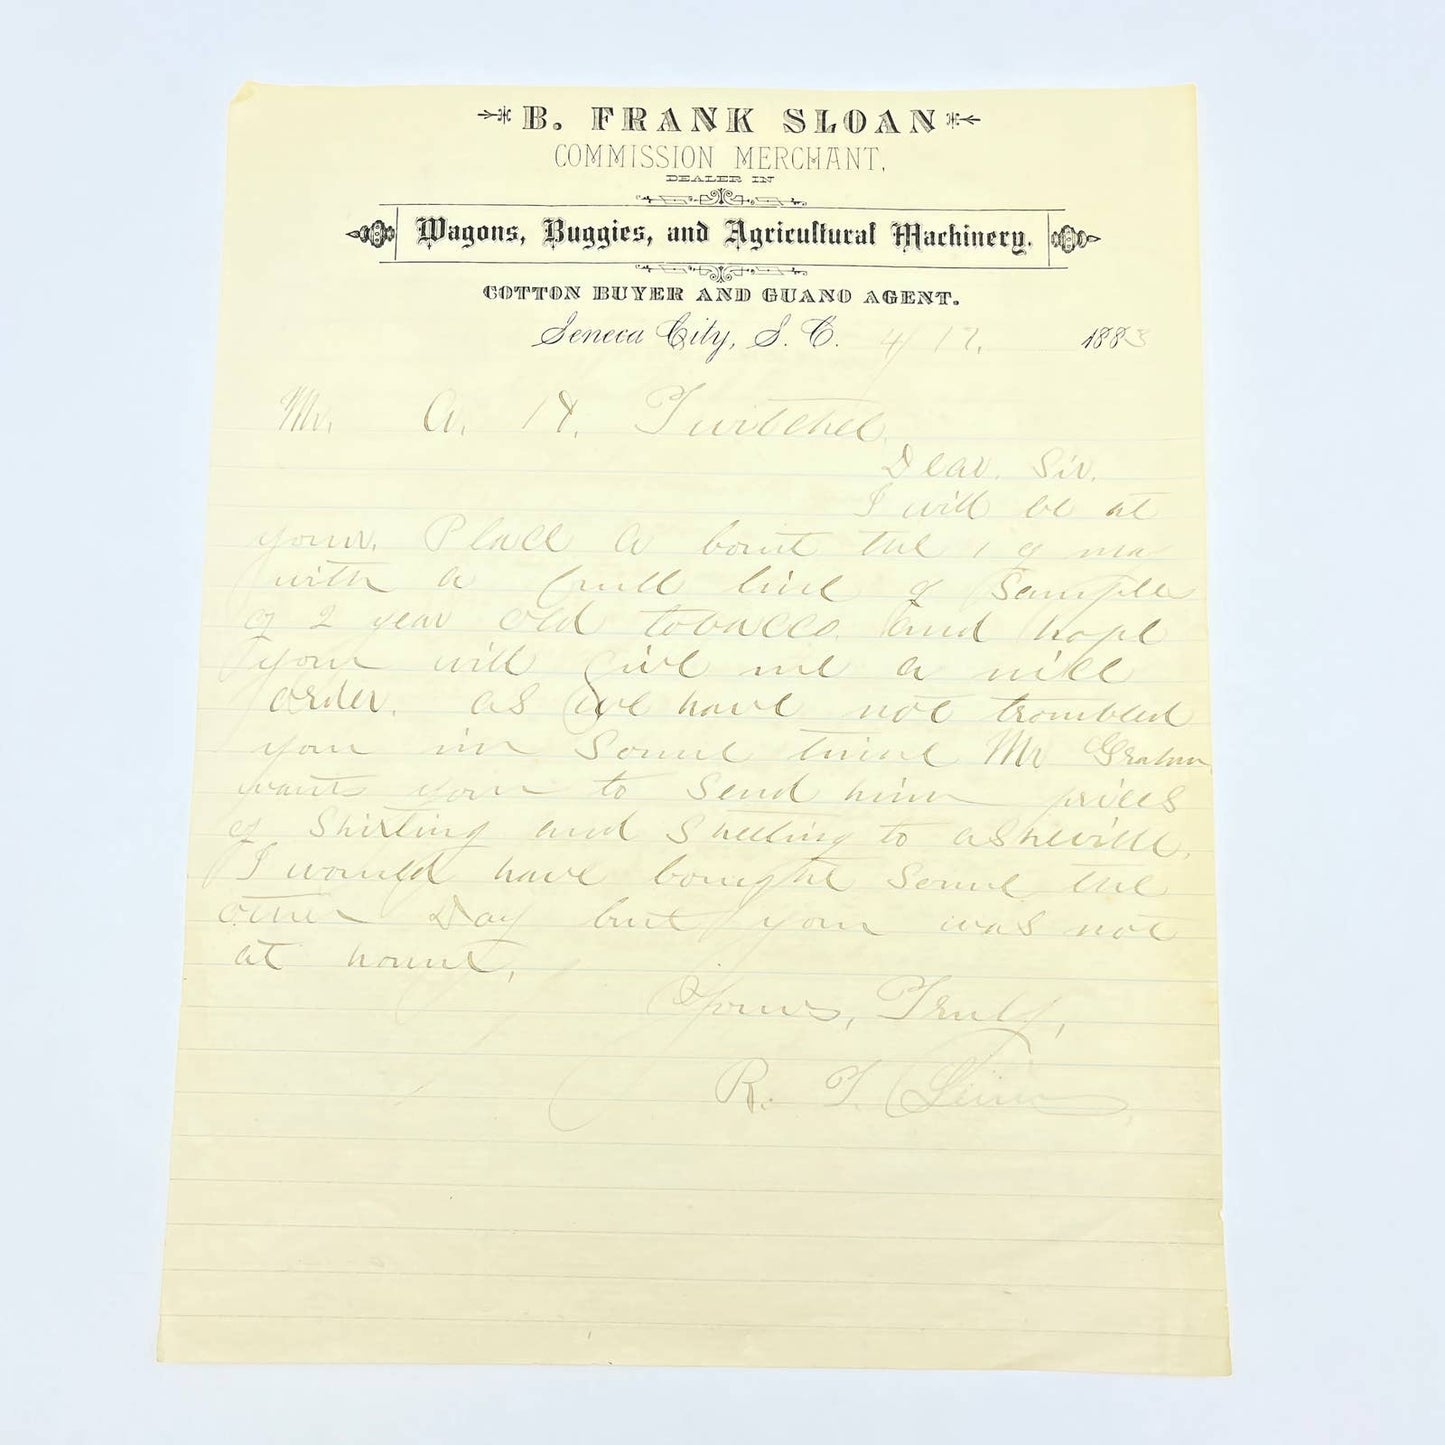 B. FRANK SLOAN
COMMISSION MERCHANT,
DEALER IN
Wagons, Buggies, and Agricultural Machinery.
COTTON BUYER AND GUANO AGENT.
Seneca City, S. C. 4/17. 1883
Mr. A. H. Twitchel.
Dear. Sir.
I will be at
your. Place a bout the 19 may
with a full line of Samples
of 2 year old tobacco. and hope
you will give me a nice
order. as we have not troubled
you in Some time Mr Graham
wants you to Send him prices
of Shirting and Sheeting to asheville.
I would have bought Some the
other Day but you was not
at home.
Yours, Truly,
R. T.